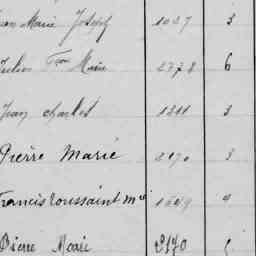 Marie Joseph 1027 3
Marie 2778 6
Jean Charles 1311 3
Pierre Marie 2170 3
Francis Toussaint Mie
Pierre Marie 2170